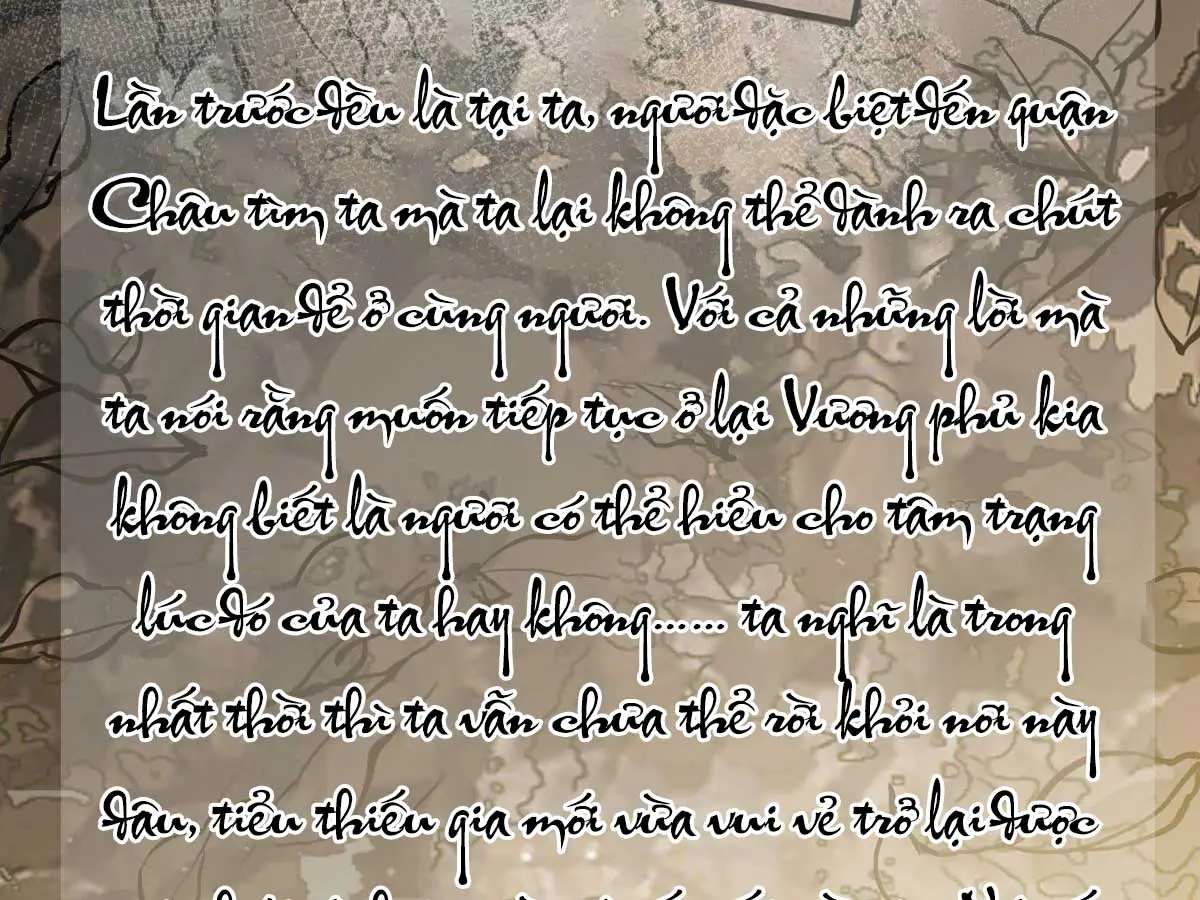 Lần trước đều là tại ta, người đặc biệt đến quận
Châu tìm ta mà ta lại không thể dành ra chút
thời gian để ở cùng người. Với cả những lời mà
ta nói rằng muốn tiếp tục ở lại Vương phủ kia
không biết là người có thể hiểu cho tâm trạng
lúc đó của ta hay không...... ta nghĩ là trong
nhất thời thì ta vẫn chưa thể rời khỏi nơi này
đâu, tiểu thiếu gia mới vừa vui vẻ trở lại được